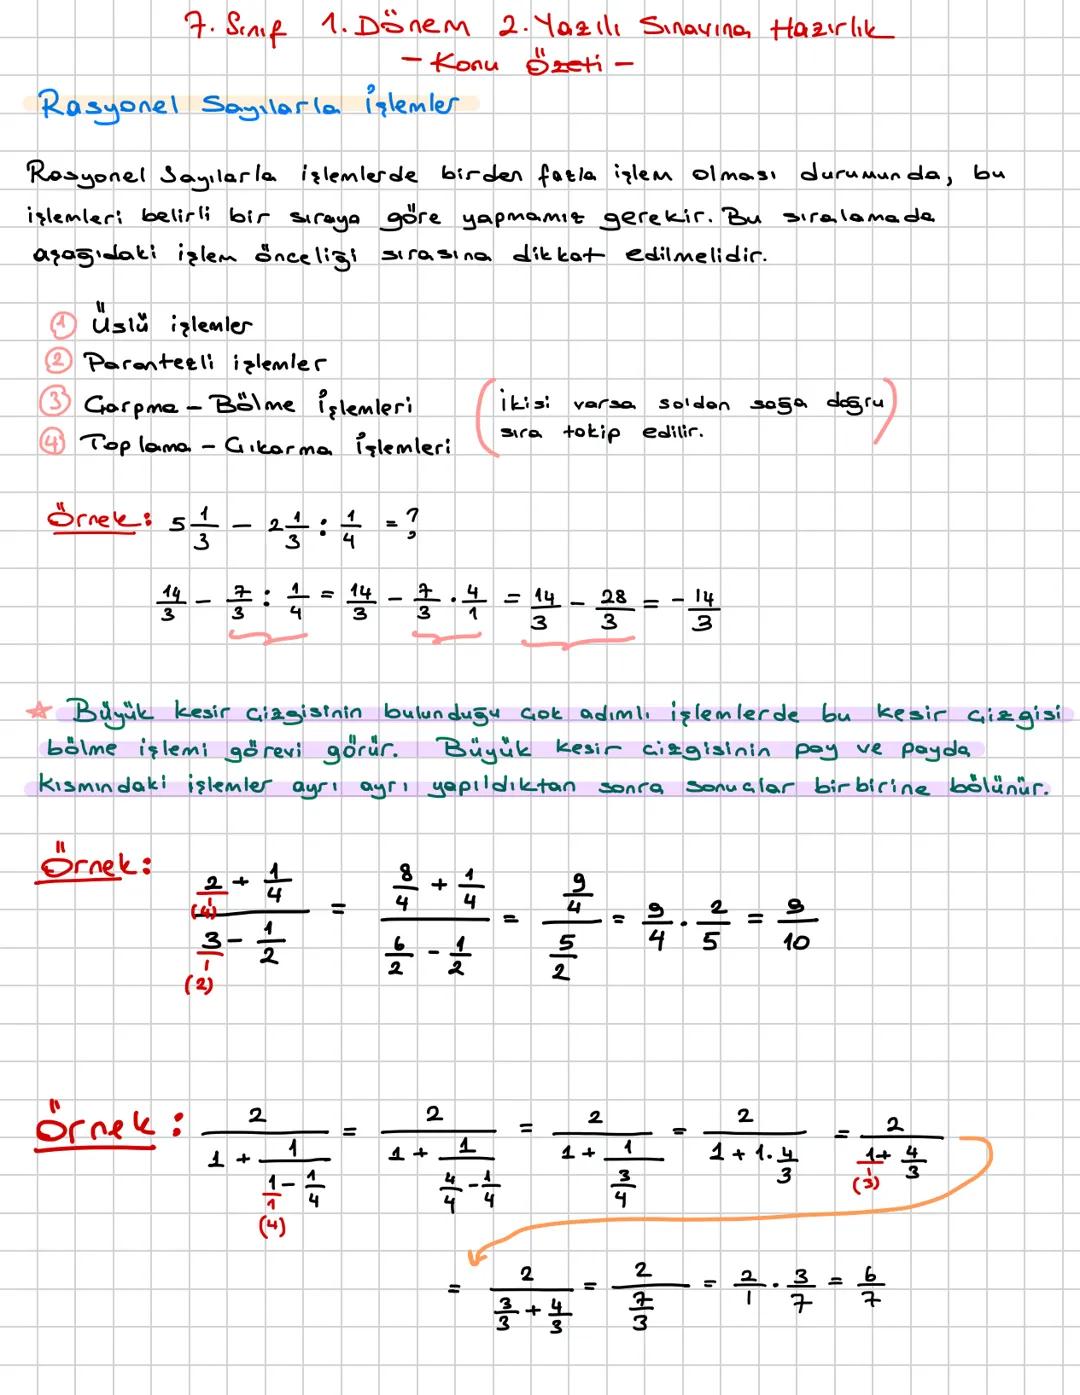 7. Sınıf 1. Dönem 2. Yazılı Sınavına Hazırlık
- Konu Özeti -
Rasyonel Sayılarla İşlemler
Rasyonel Sayılarla işlemlerde birden fazla işlem olması durumunda, bu
işlemleri belirli bir sıraya göre yapmamız gerekir. Bu sıralamada
aşağıdaki işlem önceliği sırasına dikkat edilmelidir.
1 Üslü işlemler
2 Parantezli işlemler
3 Çarpma - Bölme İşlemleri
4 Toplama - Çıkarma İşlemleri
(İkisi varsa soldan sağa doğru
sıra takip edilir.)
Örnek: 5 1/3 - 2 1/3 : 1/4 = ?
14/3 - 7/3 : 1/4 = 14/3 - 7/3 . 4/1 = 14/3 - 28/3 = -14/3
☆ Büyük kesir çizgisinin bulunduğu çok adımlı işlemlerde bu kesir çizgisi
bölme işlemi görevi görür. Büyük kesir çizgisinin pay ve payda
kısmındaki işlemler ayrı ayrı yapıldıktan sonra sonuçlar birbirine bölünür.
Örnek: (2/1 + 1/4)/(3/1 - 1/2) = (8/4 + 1/4)/(6/2 - 1/2) = (9/4)/(5/2) = 9/4 . 2/5 = 9/10
(4)
(2)
Örnek: 2/(1 + 1/(1/1 - 1/4)) = 2/(1 + 1/(4/4 - 1/4)) = 2/(1 + 1/(3/4)) = 2/(1 + 1 . 4/3) = 2/(1/1 + 4/3)
(4) (3)
= 2/(3/3 + 4/3) = 2/(7/3) = 2/1 . 3/7 = 6/7